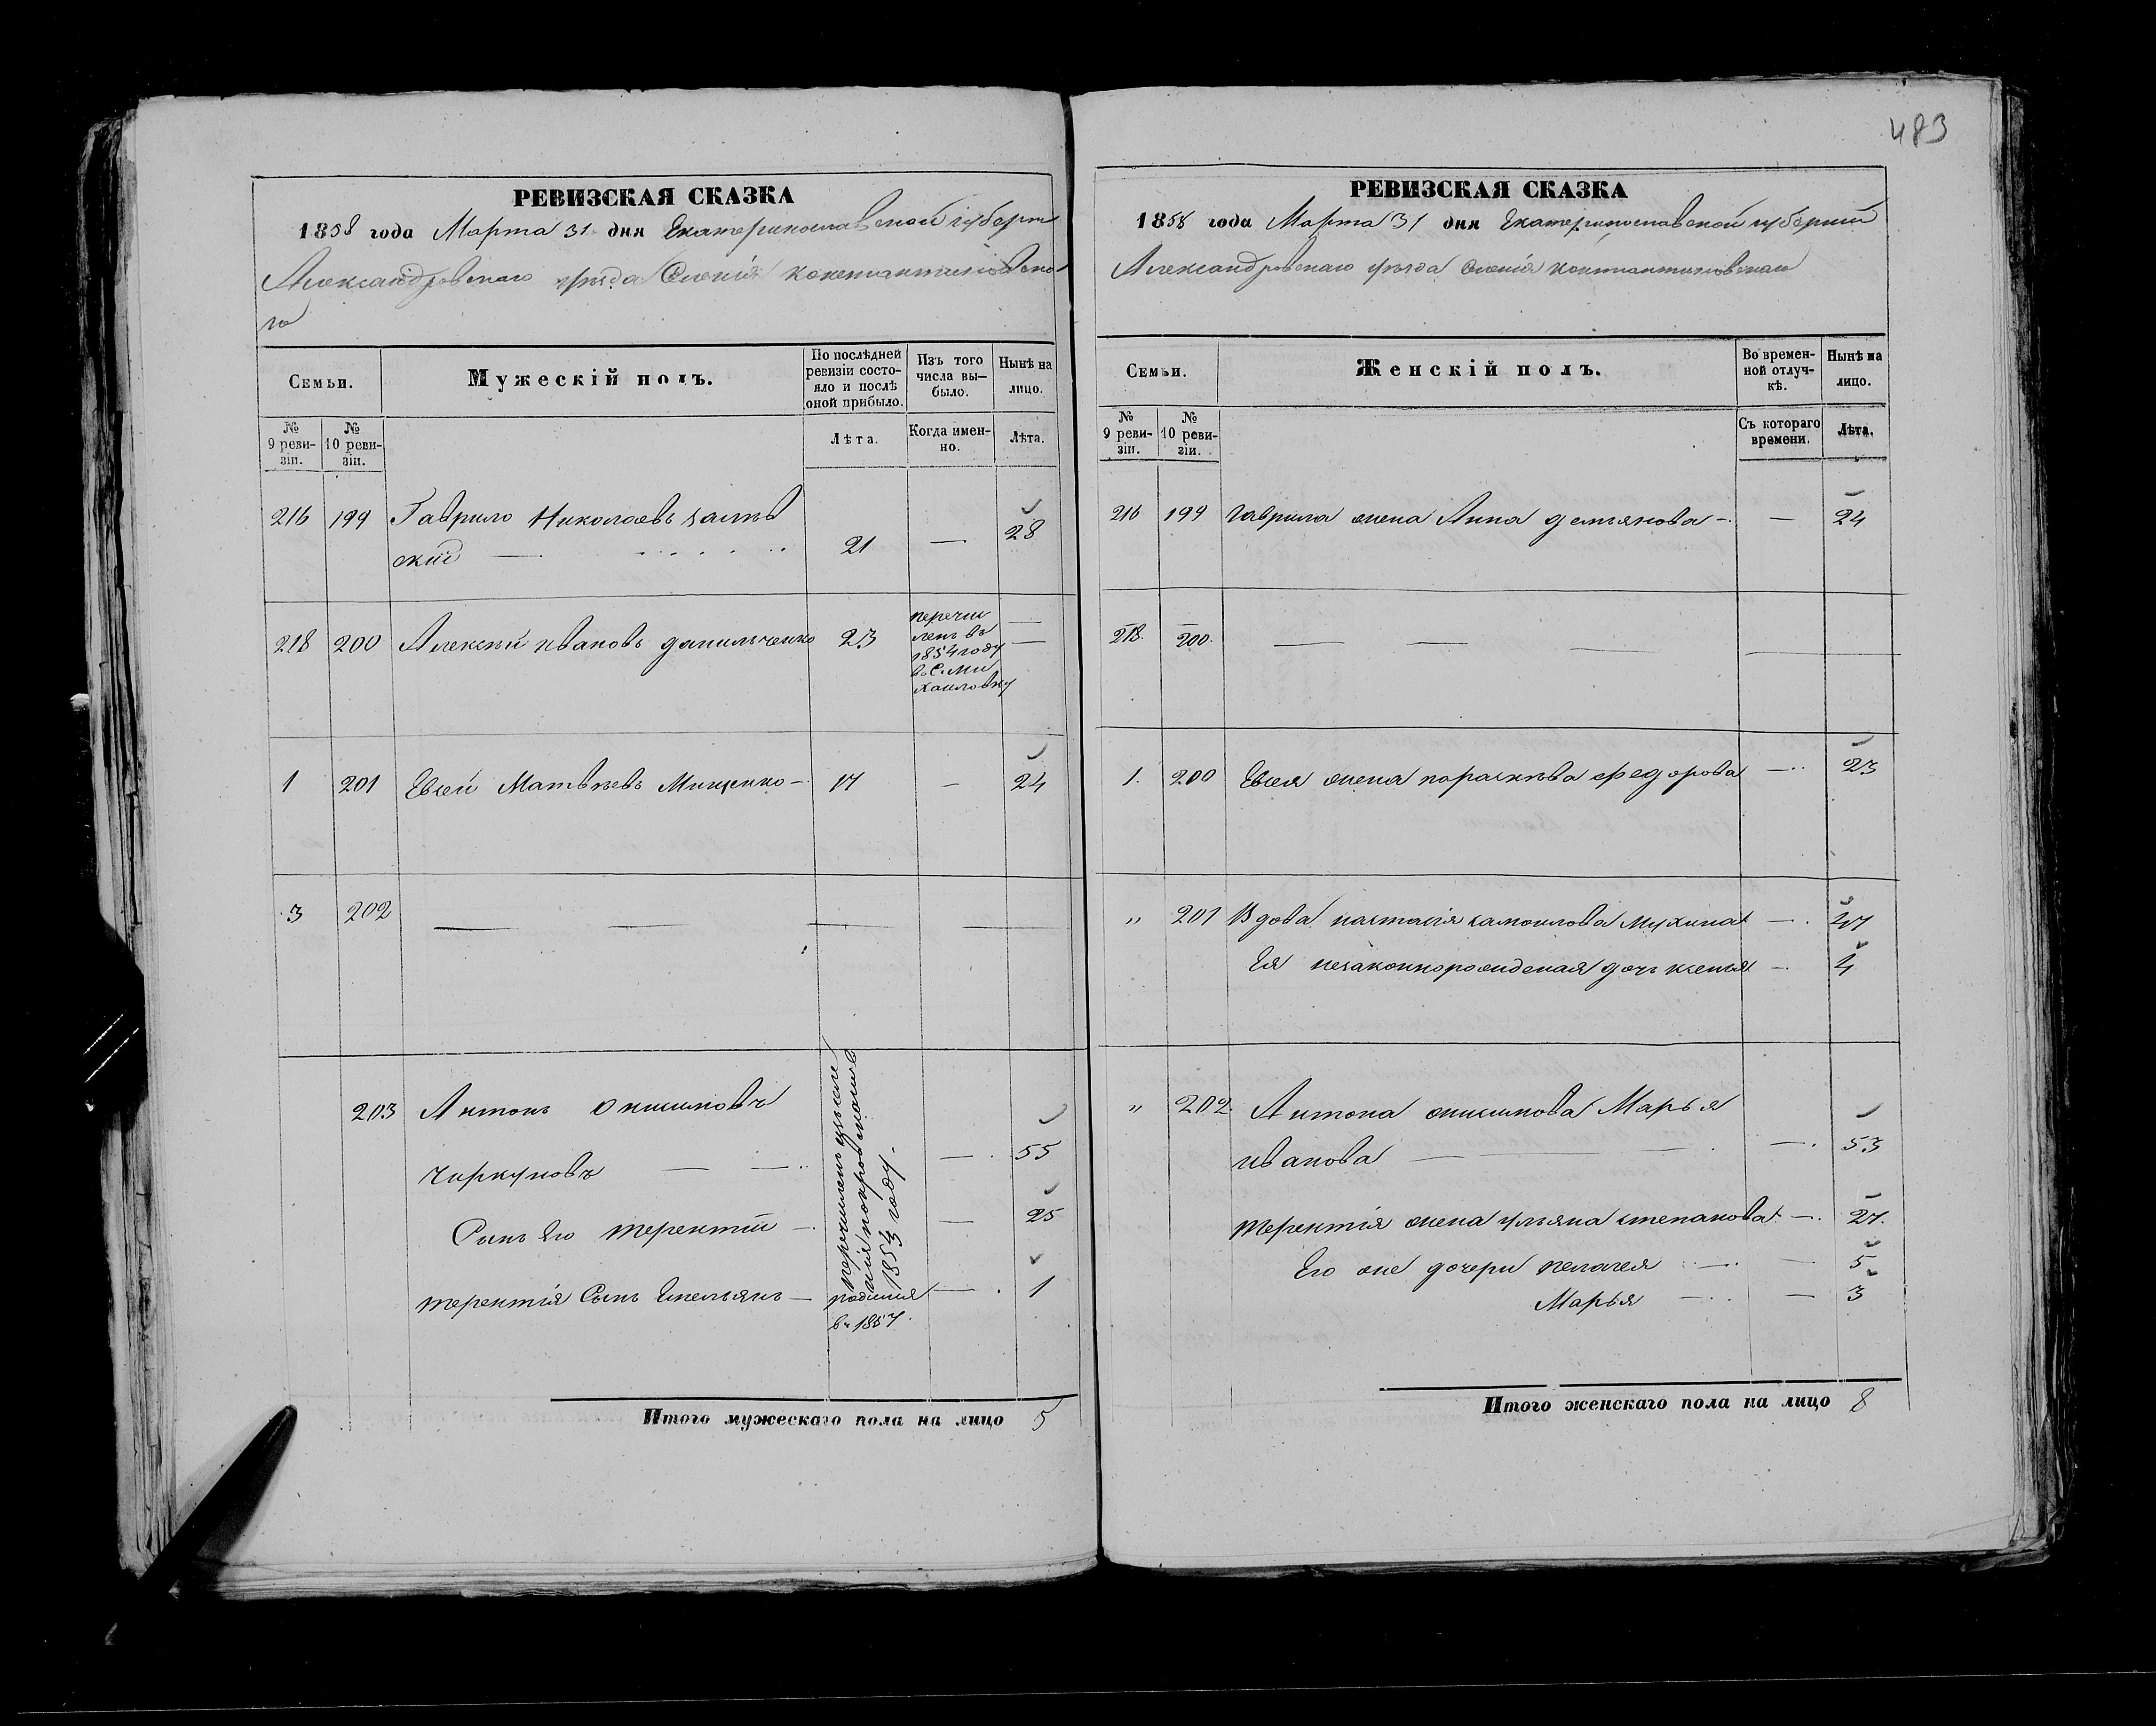 483
РЕВИЗСКАЯ СКАЗКА
1858 года Марта 31 дня Екатеринославской губерн
Александровского уезда Селенія Константиновско
го
Семьи.
Мужескій полъ.
По послѣдней
ревизіи состо-
яло и послѣ
оной прибыло.
Изъ того
числа вы-
было.
Нынѣ на
лицо.
№
9 реви-
зіи.
№
10 реви-
зіи.
Лѣта.
Когда имен-
но.
Лѣта.
216 199 Гаврило Николаевъ
скій — 21 — 28
218 200 Алексѣй Ивановъ данильченко 23
перечи
сленъ въ
1854 году
въ С. Ми
хайловку
1 201 Евсей Матвѣевъ Мищенко — 17 — 24
3 202 — — — —
203 Антонъ Онисимовъ
Чиркуновъ — — — 55
Сынъ Его терентій — — 25
терентія Сынъ Емельянъ — — 1
перечисленъ
1853 году.
родился
въ 1857.
Итого мужескаго пола на лицо 5
РЕВИЗСКАЯ СКАЗКА
1858 года Марта 31 дня Екатеринославской губерніи
Александровскаго уѣзда Селенія Константиновскаго
Семьи.
Женскій полъ.
Во времен-
ной отлуч-
кѣ.
Нынѣ на
лицо.
№
9 реви-
зіи.
№
10 реви-
зіи.
Съ котораго
времени.
Лѣта.
216 199 Гаврила жена Анна демьянова — — 24
218. 200. — — —
1. 200 Евсея жена параскева федорова — 23
" 201 Вдова настасія самоилова Мухина — 47
Ея незаконнорожденая дочь ксенья — 4
" 202. Антона жена Марья
иванова — — — 53
терентія жена ульяна степанова — 27.
Его же дочери пелагея — — 5
Марья — — 3
Итого женскаго пола на лицо 8